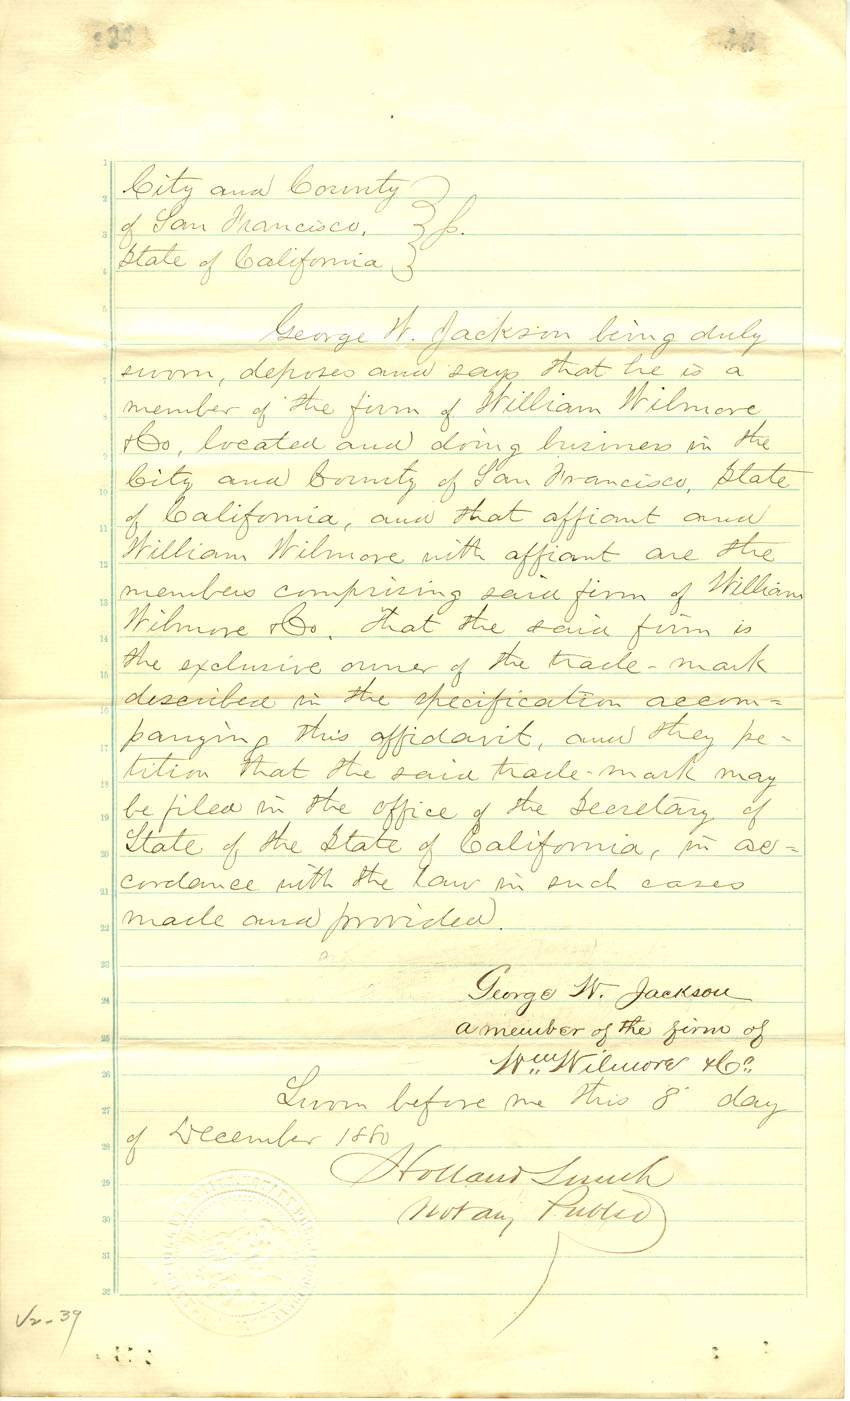 City and County
of San Francisco, ss.
State of California
George W. Jackson being duly
sworn, deposes and says that he is a
member of the firm of William Wilmore
& Co, located and doing business in the
City and County of San Francisco, State
of California, and that affiant and
William Wilmore with affiant are the
members comprising said firm of William
Wilmore & Co. That the said firm is
the exclusive owner of the trade-mark
described in the specification accom=
panying this affidavit, and they pe=
tition that the said trade-mark may
be filed in the office of the Secretary of
State of the State of California, in ac=
cordance with the law in such cases
made and provided.
George W. Jackson
a member of the firm of
Wm Wilmore & Co.
Sworn before me this 8 day
of December 1880
Holland Smith
Notary Public
39
1
2
3
4
5
6
7
8
9
10
11
12
13
14
15
16
17
18
19
20
21
22
23
24
25
26
27
28
29
30
31
32